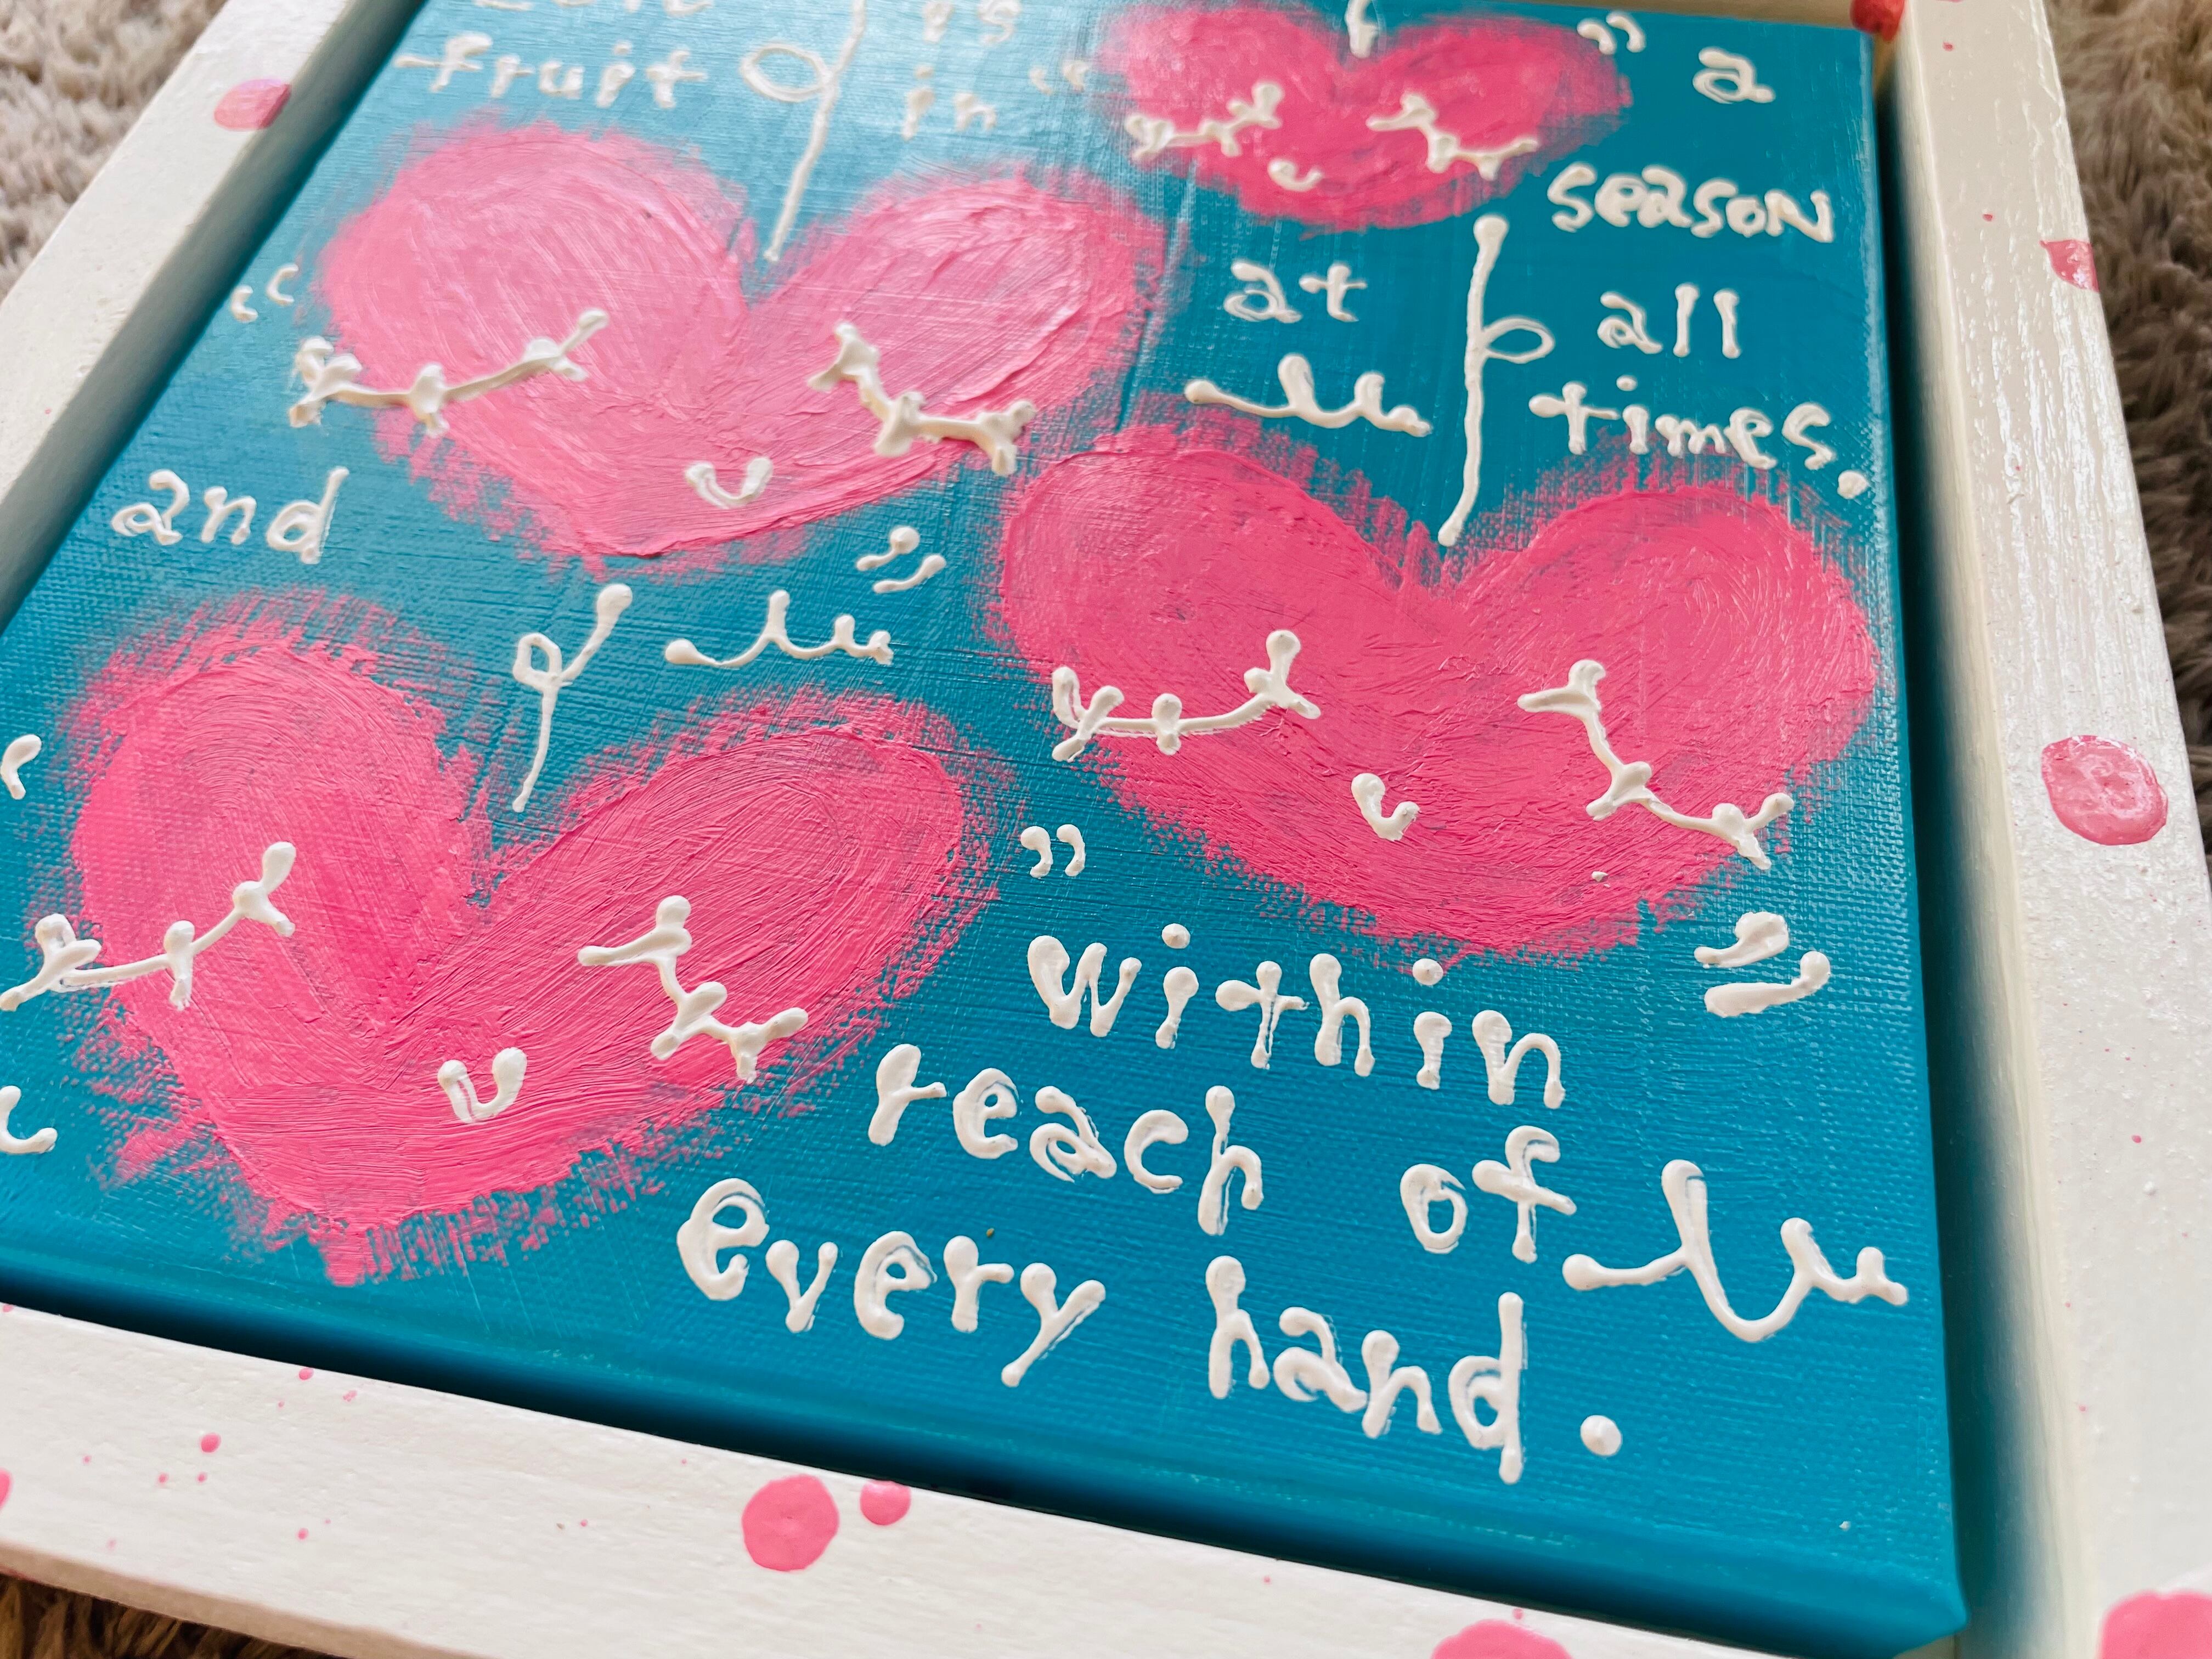 is
fruit in " " a
season
at all
times.
and
within
reach of
every hand.